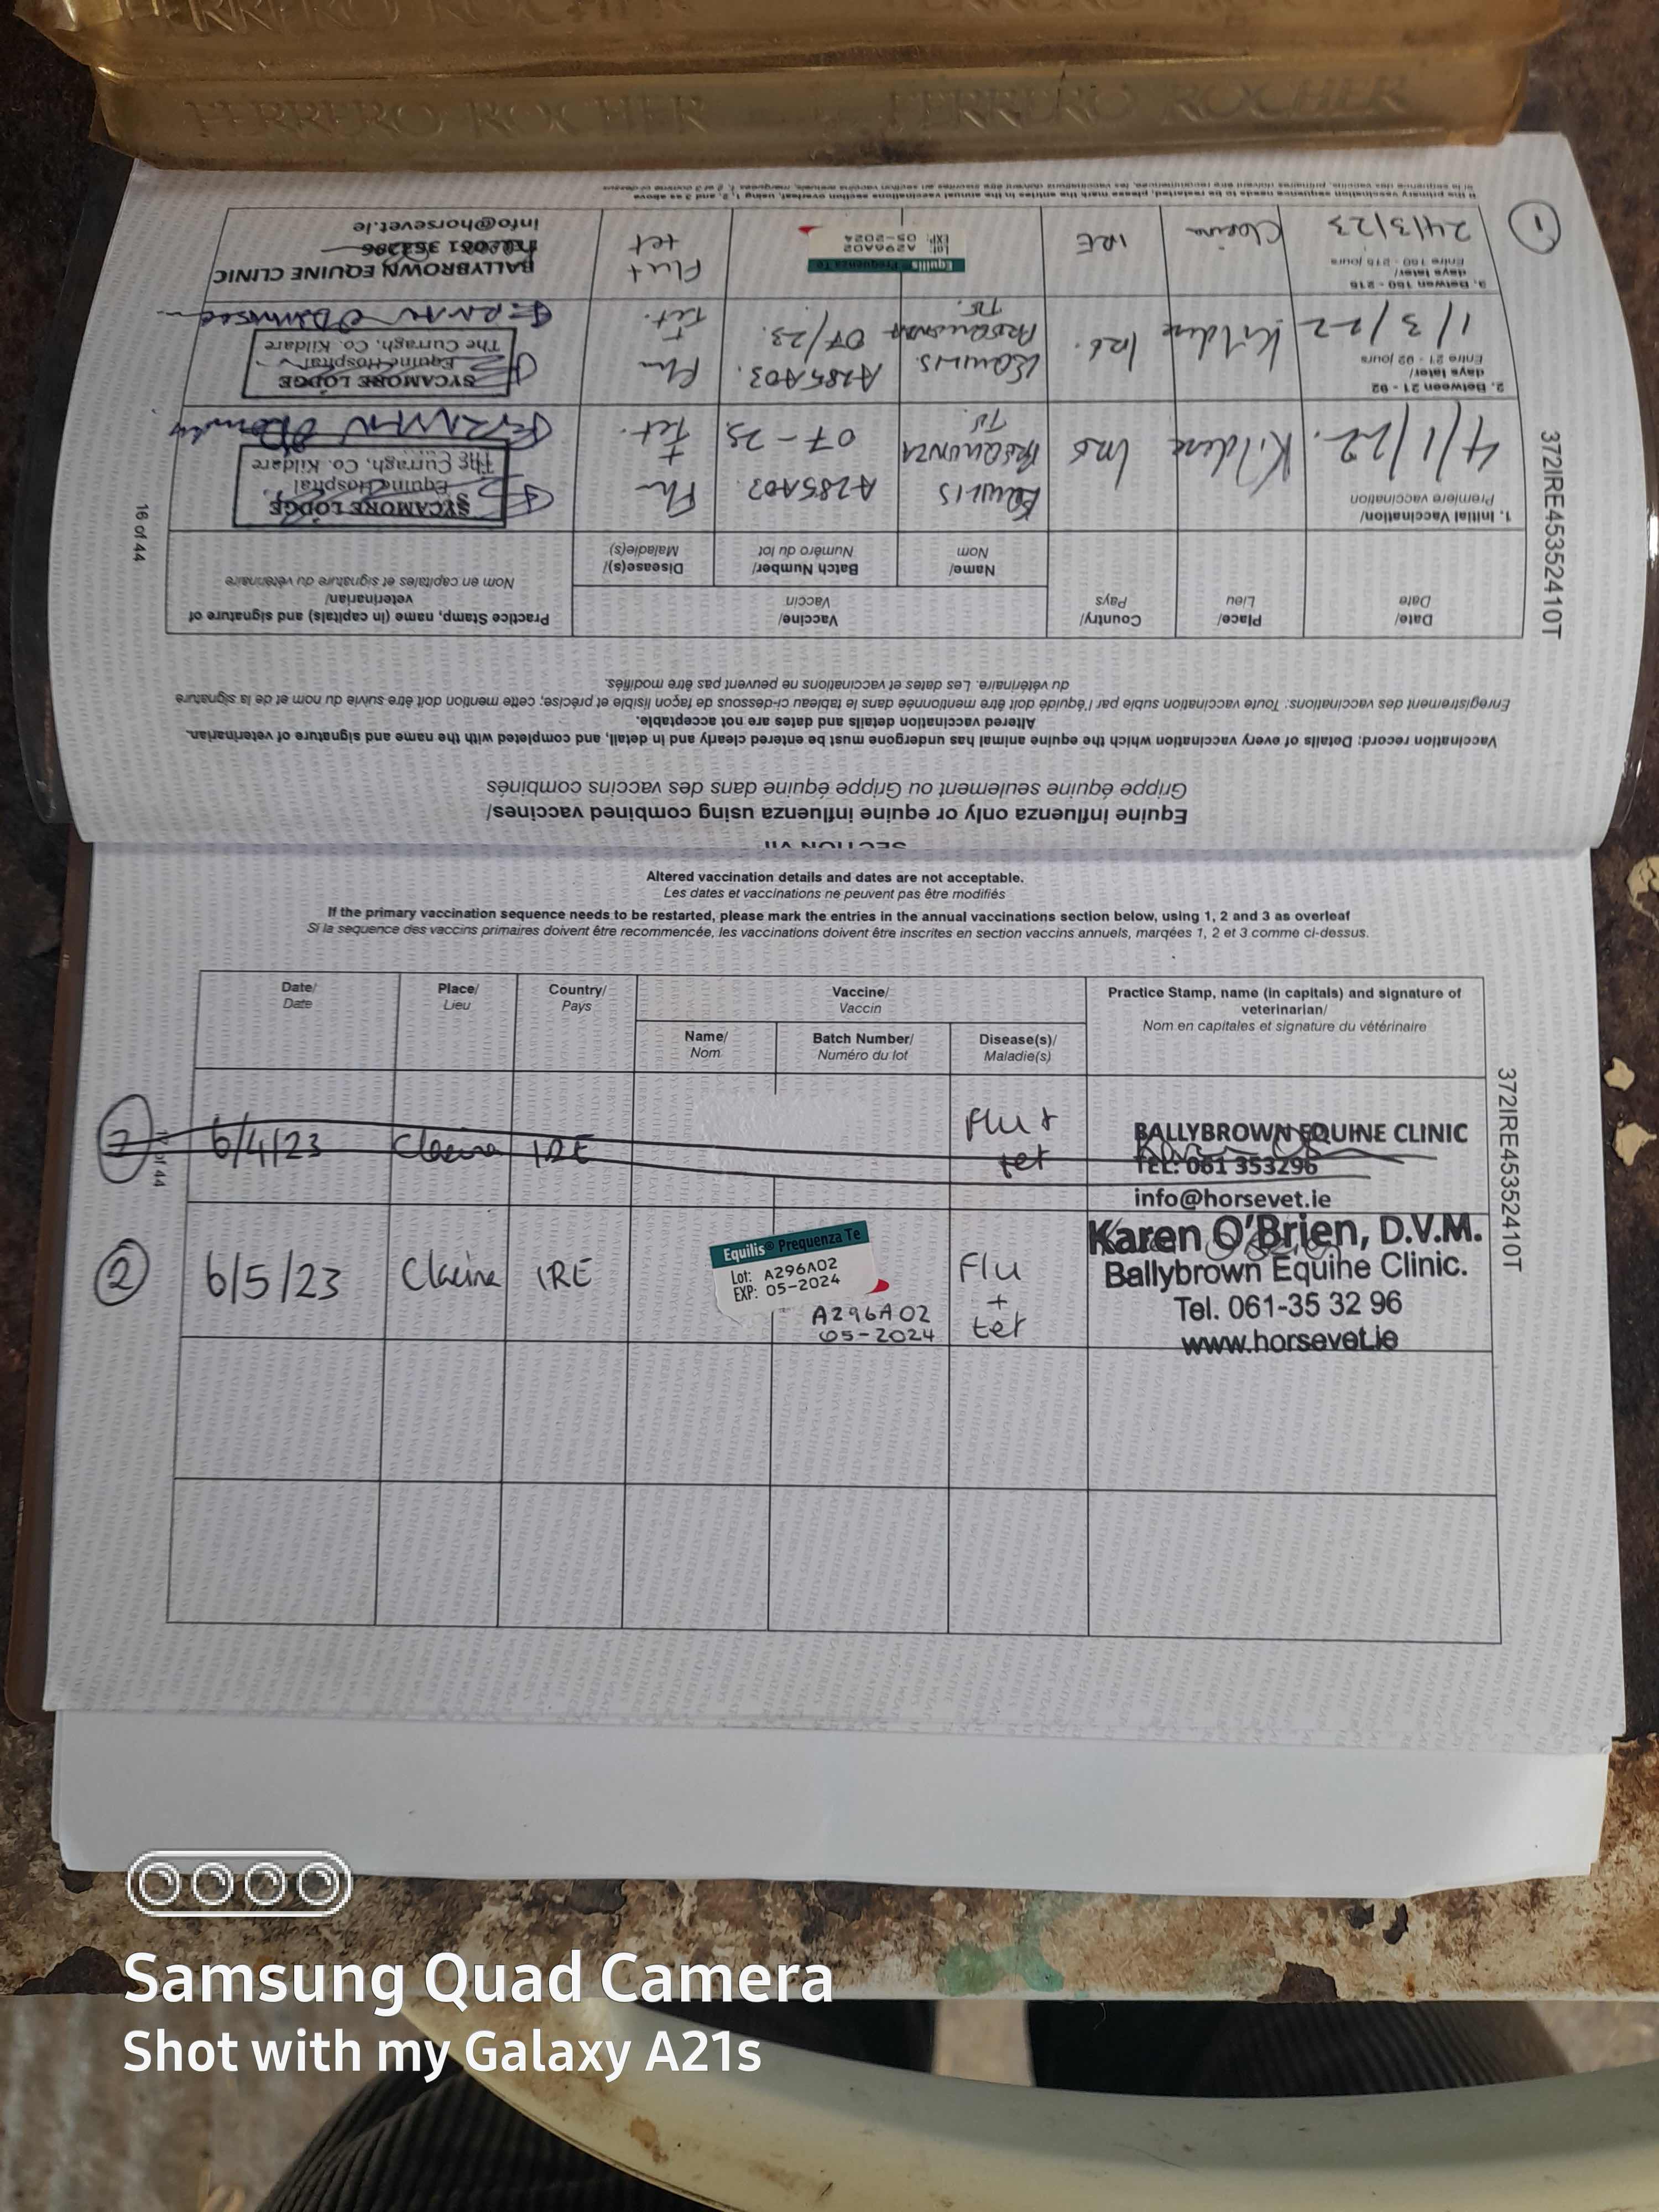 FERRERO ROCHER FERRERO ROCHER
FERRERO ROCHER FERRERO ROCHER
SECTION VII
Equine Influenza only or equine influenza using combined vaccines/
Grippe équine seulement ou Grippe équine dans des vaccins combinés
Vaccination record: Details of every vaccination which the equine animal has undergone must be entered clearly and in detail, and completed with the name and signature of veterinarian.
Altered vaccination details and dates are not acceptable.
Enregistrement des vaccinations: Toute vaccination subie par l'équidé doit être mentionnée dans le tableau ci-dessous de façon lisible et précise; cette mention doit être suivie du nom et de la signature
du vétérinaire. Les dates et vaccinations ne peuvent pas être modifiés.
Date/ Place/ Country/ Vaccine/ Practice Stamp, name (in capitals) and signature of
Date Lieu Pays Vaccin veterinarian/
Name/ Batch Number/ Disease(s)/ Nom en capitales et signature du vétérinaire
Nom Numéro du lot Maladie(s)
1. Initial Vaccination/
Premiere vaccination
4/1/22. Kildare EQUILIS A285A02 Flu
PREQUENZA 07-23 + Tet.
TE.
SYCAMORE LODGE
Equine Hospital
The Curragh, Co. Kildare
2. Between 21 - 92
days later/
Entre 21 - 92 jours
1/3/22 Kildare EQUILIS A285A03. Flu
PREQUENZA 07/23. + Tet.
TE.
SYCAMORE LODGE
Equine Hospital
The Curragh, Co. Kildare
3. Betwen 150 - 215
days later/
Entre 150 - 215 jours
1
24/3/23 IRE
Equilis® Prequenza Te
Lot: A296A02
EXP: 05-2024
Flu +
tet
BALLYBROWN EQUINE CLINIC
TEL: 061 353296
info@horsevet.ie
If the primary vaccination sequence needs to be restarted, please mark the entries in the annual vaccinations section overleaf, using 1, 2 and 3 as above
16 of 44
372IRE45352410T
Altered vaccination details and dates are not acceptable.
Les dates et vaccinations ne peuvent pas être modifiés
If the primary vaccination sequence needs to be restarted, please mark the entries in the annual vaccinations section below, using 1, 2 and 3 as overleaf
Si la sequence des vaccins primaires doivent être recommencée, les vaccinations doivent être inscrites en section vaccins annuels, marqées 1, 2 et 3 comme ci-dessus.
Date/ Place/ Country/ Vaccine/ Practice Stamp, name (in capitals) and signature of
Date Lieu Pays Vaccin veterinarian/
Name/ Batch Number/ Disease(s)/ Nom en capitales et signature du vétérinaire
Nom Numéro du lot Maladie(s)
2 6/4/23 IRE Flu +
tet
BALLYBROWN EQUINE CLINIC
TEL: 061 353296
info@horsevet.ie
of 44
2 6/5/23 IRE
Equilis® Prequenza Te
Lot: A296A02
EXP: 05-2024
A296A02
05-2024
Flu
+
tet
Karen O'Brien, D.V.M.
Ballybrown Equine Clinic.
Tel. 061-35 32 96
www.horsevet.ie
372IRE45352410T
Samsung Quad Camera
Shot with my Galaxy A21s